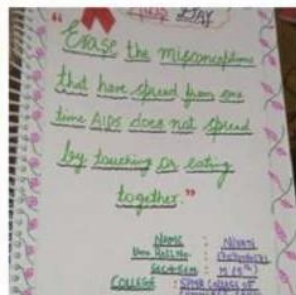 AIDS DAY
"Erase the misconceptions
that have spread from one
time AIDS does not spread
by touching or eating
together."
NAME :
Uni Roll.No. :
SEC & SEM : M (5th)
COLLEGE : COLLEGE OF